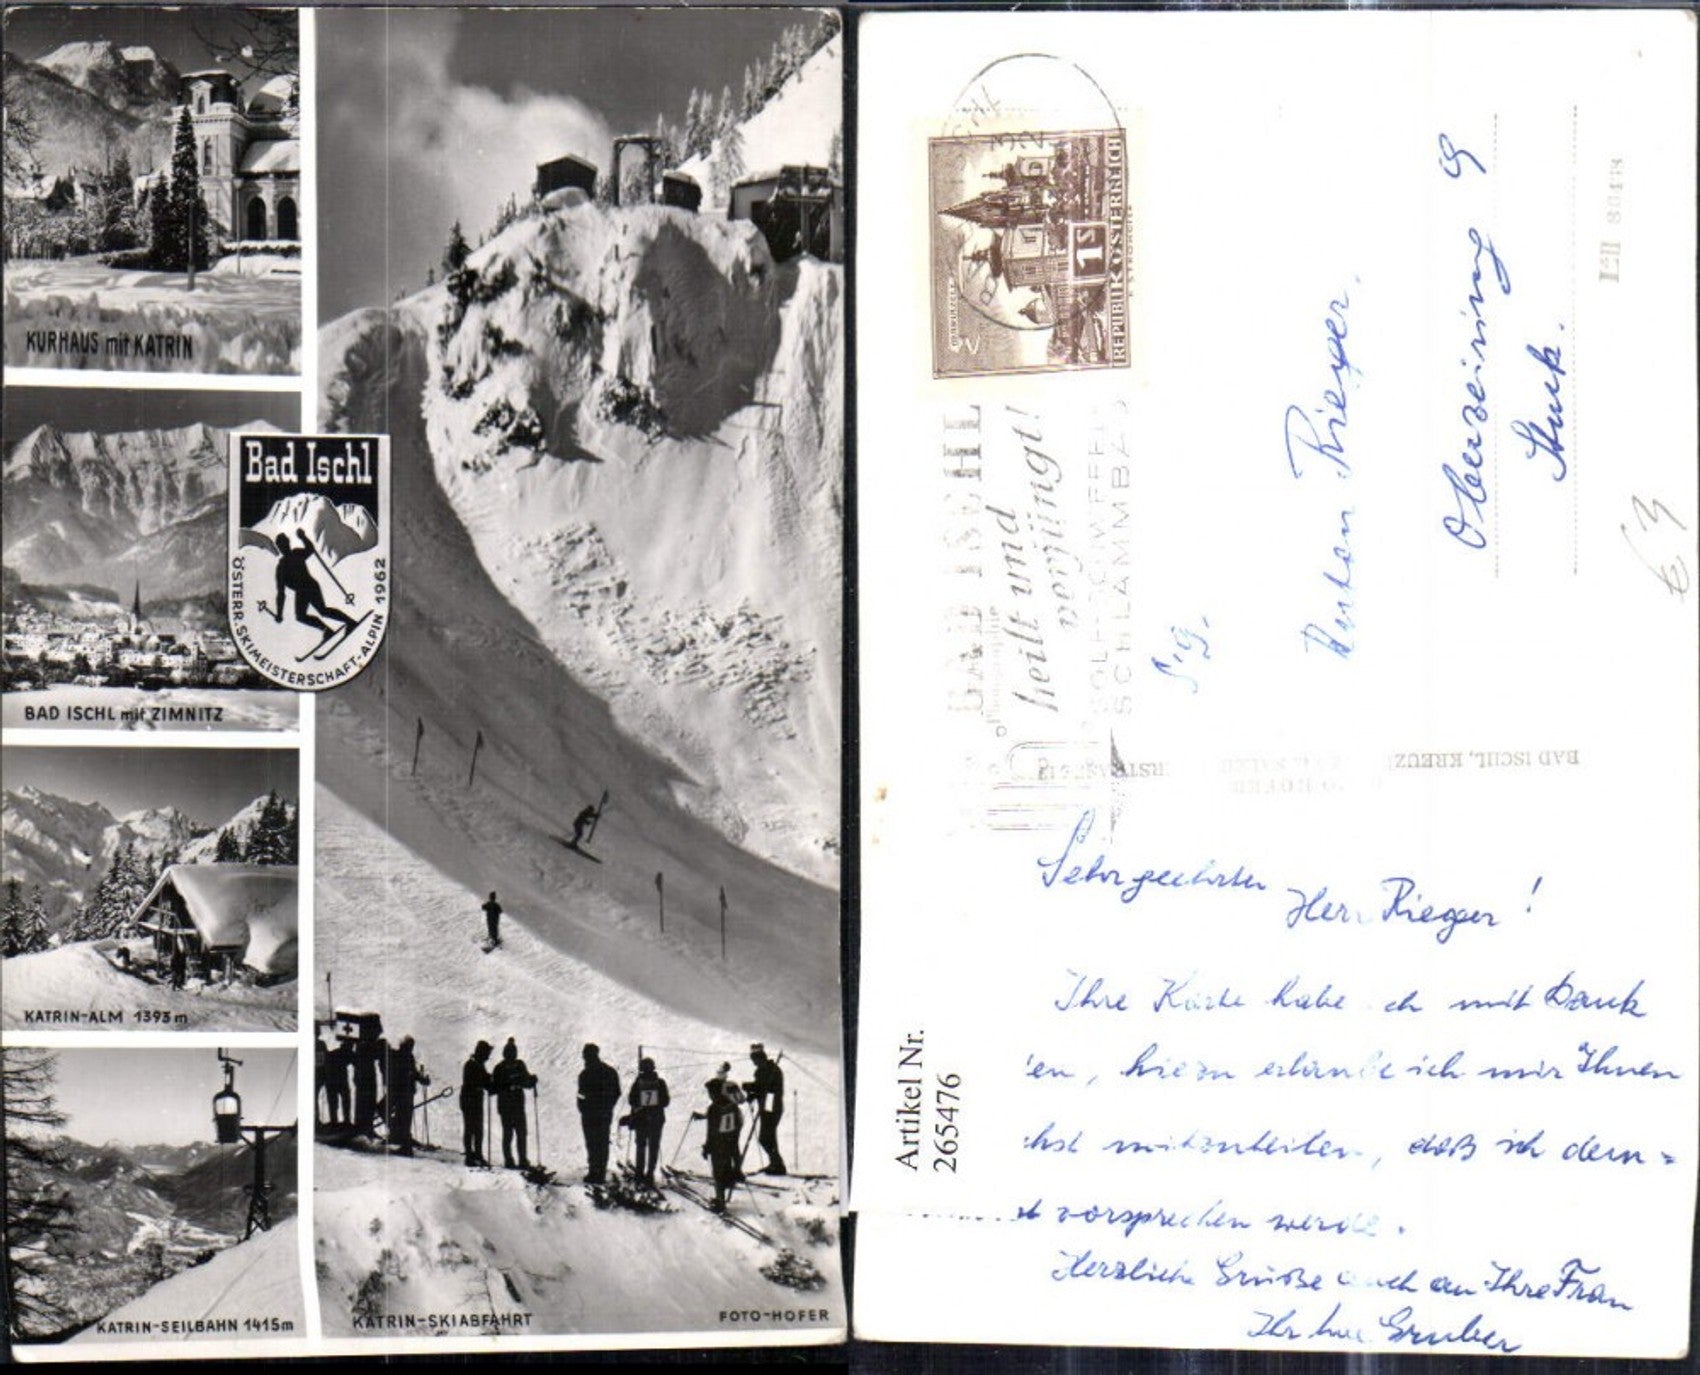 KURHAUS mit KATRIN
Bad Ischl
ÖSTERR. SKIMEISTERSCHAFT-ALPIN 1962
BAD ISCHL mit ZIMNITZ
KATRIN-ALM 1393m
KATRIN-SEILBAHN 1415m
KATRIN-SKIABFAHRT
FOTO-HOFER
REPUBLIK ÖSTERREICH
1S
BAD ISCHL
heilt und
verjüngt!
SCHLAMMBAD
S.g.
Herrn Rieger.
Oberzeiring 9
Stmk.
€ 3
BAD ISCHL, KREUZ
Sehrgeehrter
Herr Rieger!
Ihre Karte habe ich mit Dank
en, hiezu erlaube ich mir Ihnen
chst mitzuteilen, daß ich dem-
t vorsprechen werde.
Herzliche Grüße auch an Ihre Frau
Ihr Gruber
Artikel Nr.
265476